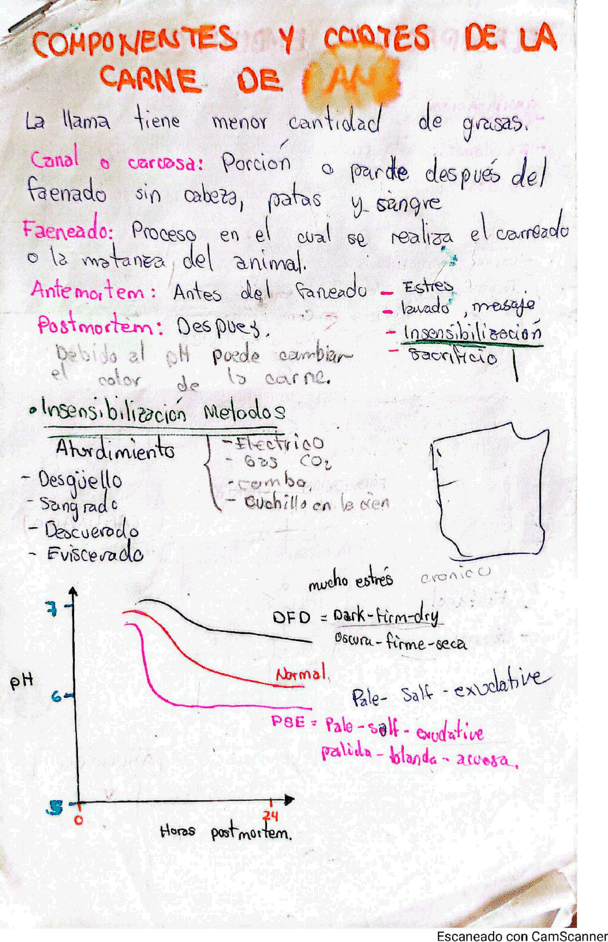 COMPONENTES Y CORTES DE LA
CARNE DE
La llama tiene menor cantidad de grasas.
Canal o carcasa: Porción o parde después del
faenado sin cabeza, patas y sangre
Faeneado: Proceso en el cual se realiza el carneado
o la matanza del animal.
Antemortem: Antes del faneado - Estres
- lavado, mesaje
Postmortem: Despues.
- Insensibilización
- Sacrificio
Debido al pH puede cambiar
el color de la carne.
• Insensibilización Metodos
Aturdimiento
- Electrico
- Gas CO2
- combo,
- Cuchillo en la sien
- Desgüello
- Sangrado
- Descuerado
- Eviscerado
mucho estrés cronico
7
DFD = Dark-firm-dry
Oscura-firme-seca
pH
Normal.
6
Pale- Salf - exudative
PSE = Pale-salf-exudative
palida-blanda-acuosa.
5
0
24
Horas postmortem.
Escaneado con CamScanner